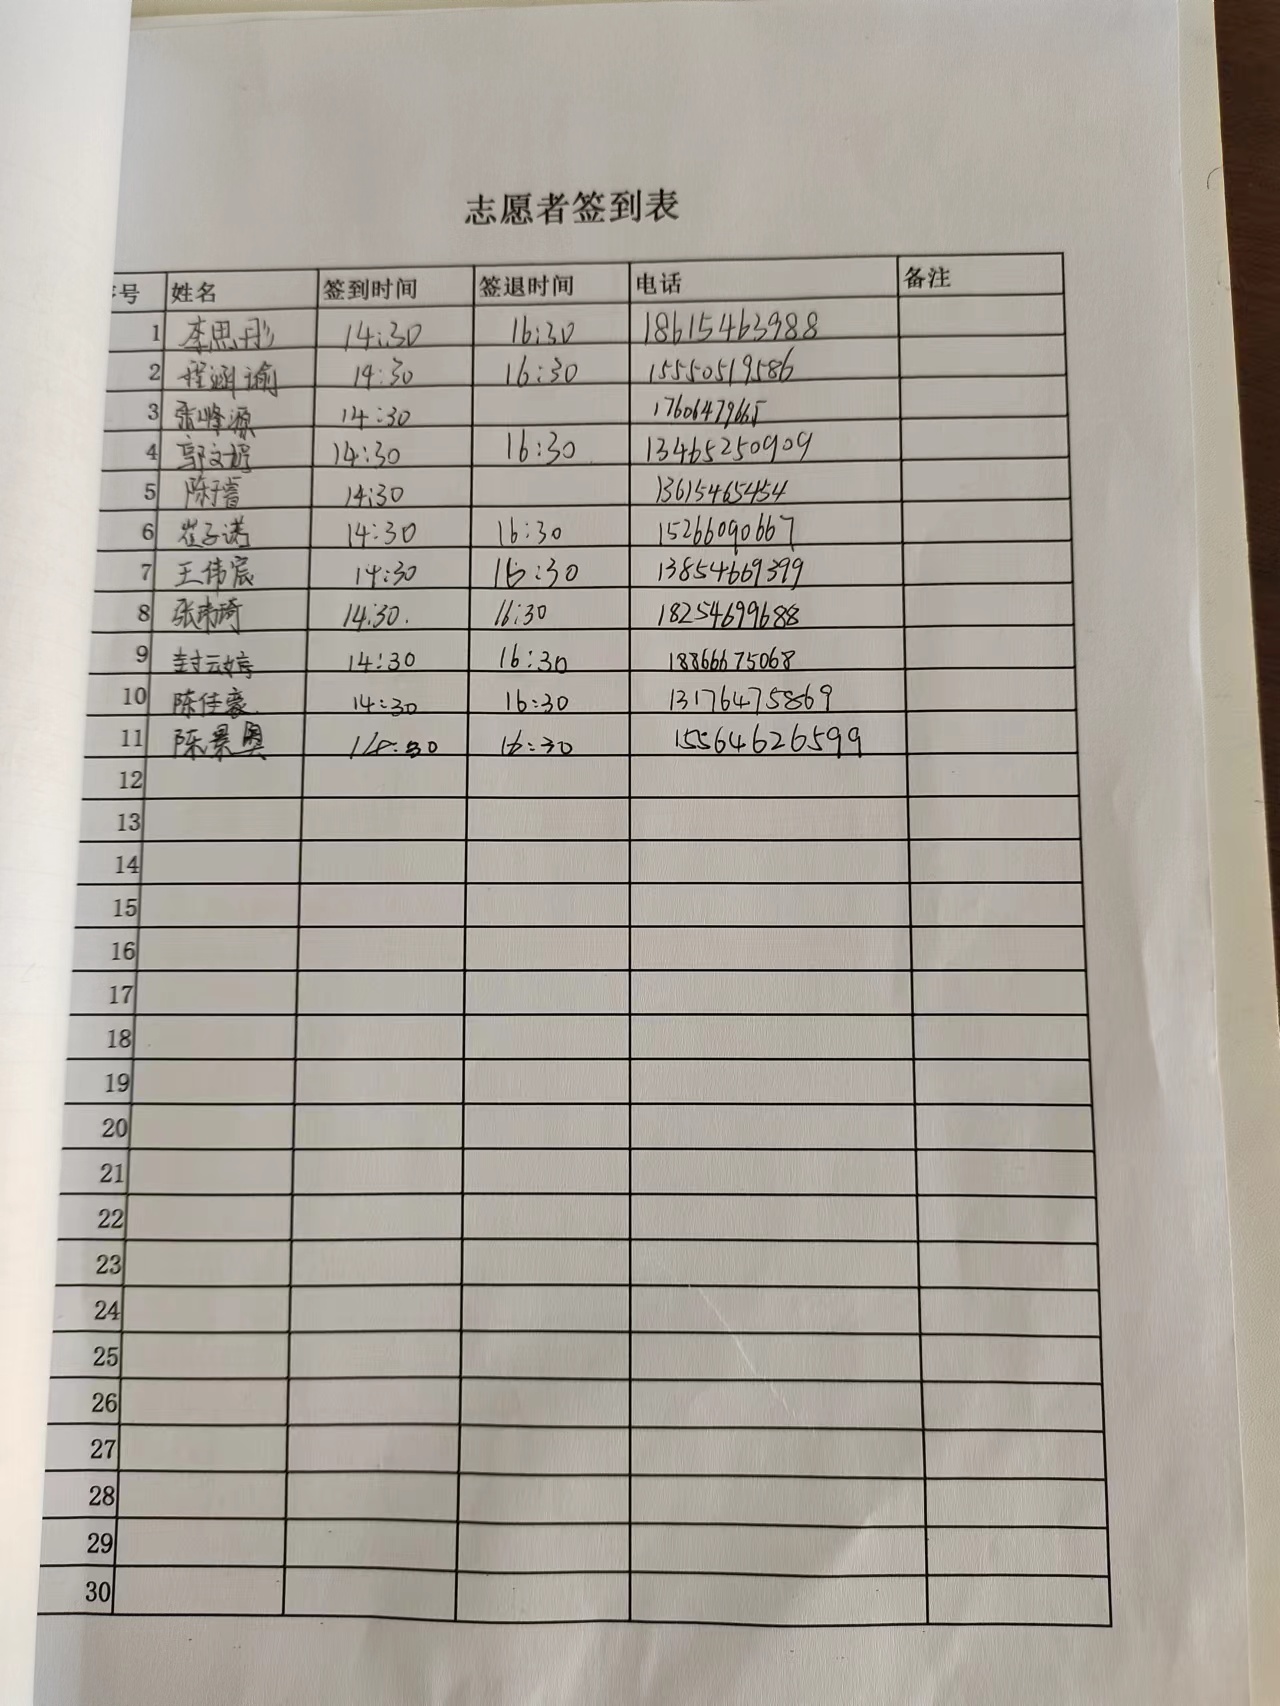 志愿者签到表
号 姓名 签到时间 签退时间 电话 备注
1 李思彤 14:30 16:30 18615463988
2 程涵谕 14:30 16:30 15550519586
3 张峰源 14:30 17606479665
4 郭文 14:30 16:30 13465250909
5 陈 14:30 13615465454
6 崔子诺 14:30 16:30 15266090667
7 王伟宸 14:30 16:30 13854669399
8 张琦 14:30. 16:30 18254699688
9 封云婷 14:30 16:30 18866675068
10 陈佳豪 14:30 16:30 13176475869
11 陈景奥 14:30 16:30 15564626599
12
13
14
15
16
17
18
19
20
21
22
23
24
25
26
27
28
29
30